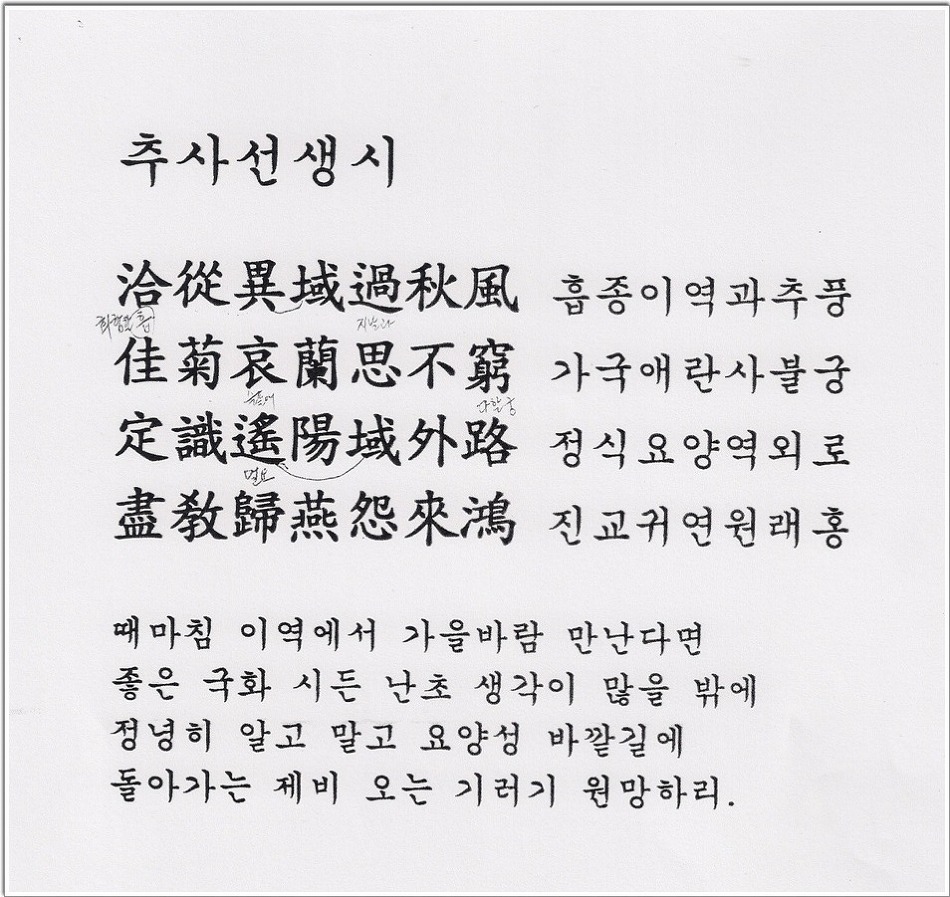 추사선생시
洽從異域過秋風 흡종이역과추풍
지날과
佳菊哀蘭思不窮 가국애란사불궁
다할궁
定識遙陽域外路 정식요양역외로
멀요
盡敎歸燕怨來鴻 진교귀연원래홍
때마침 이역에서 가을바람 만난다면
좋은 국화 시든 난초 생각이 많을 밖에
정녕히 알고 말고 요양성 바깥길에
돌아가는 제비 오는 기러기 원망하리.